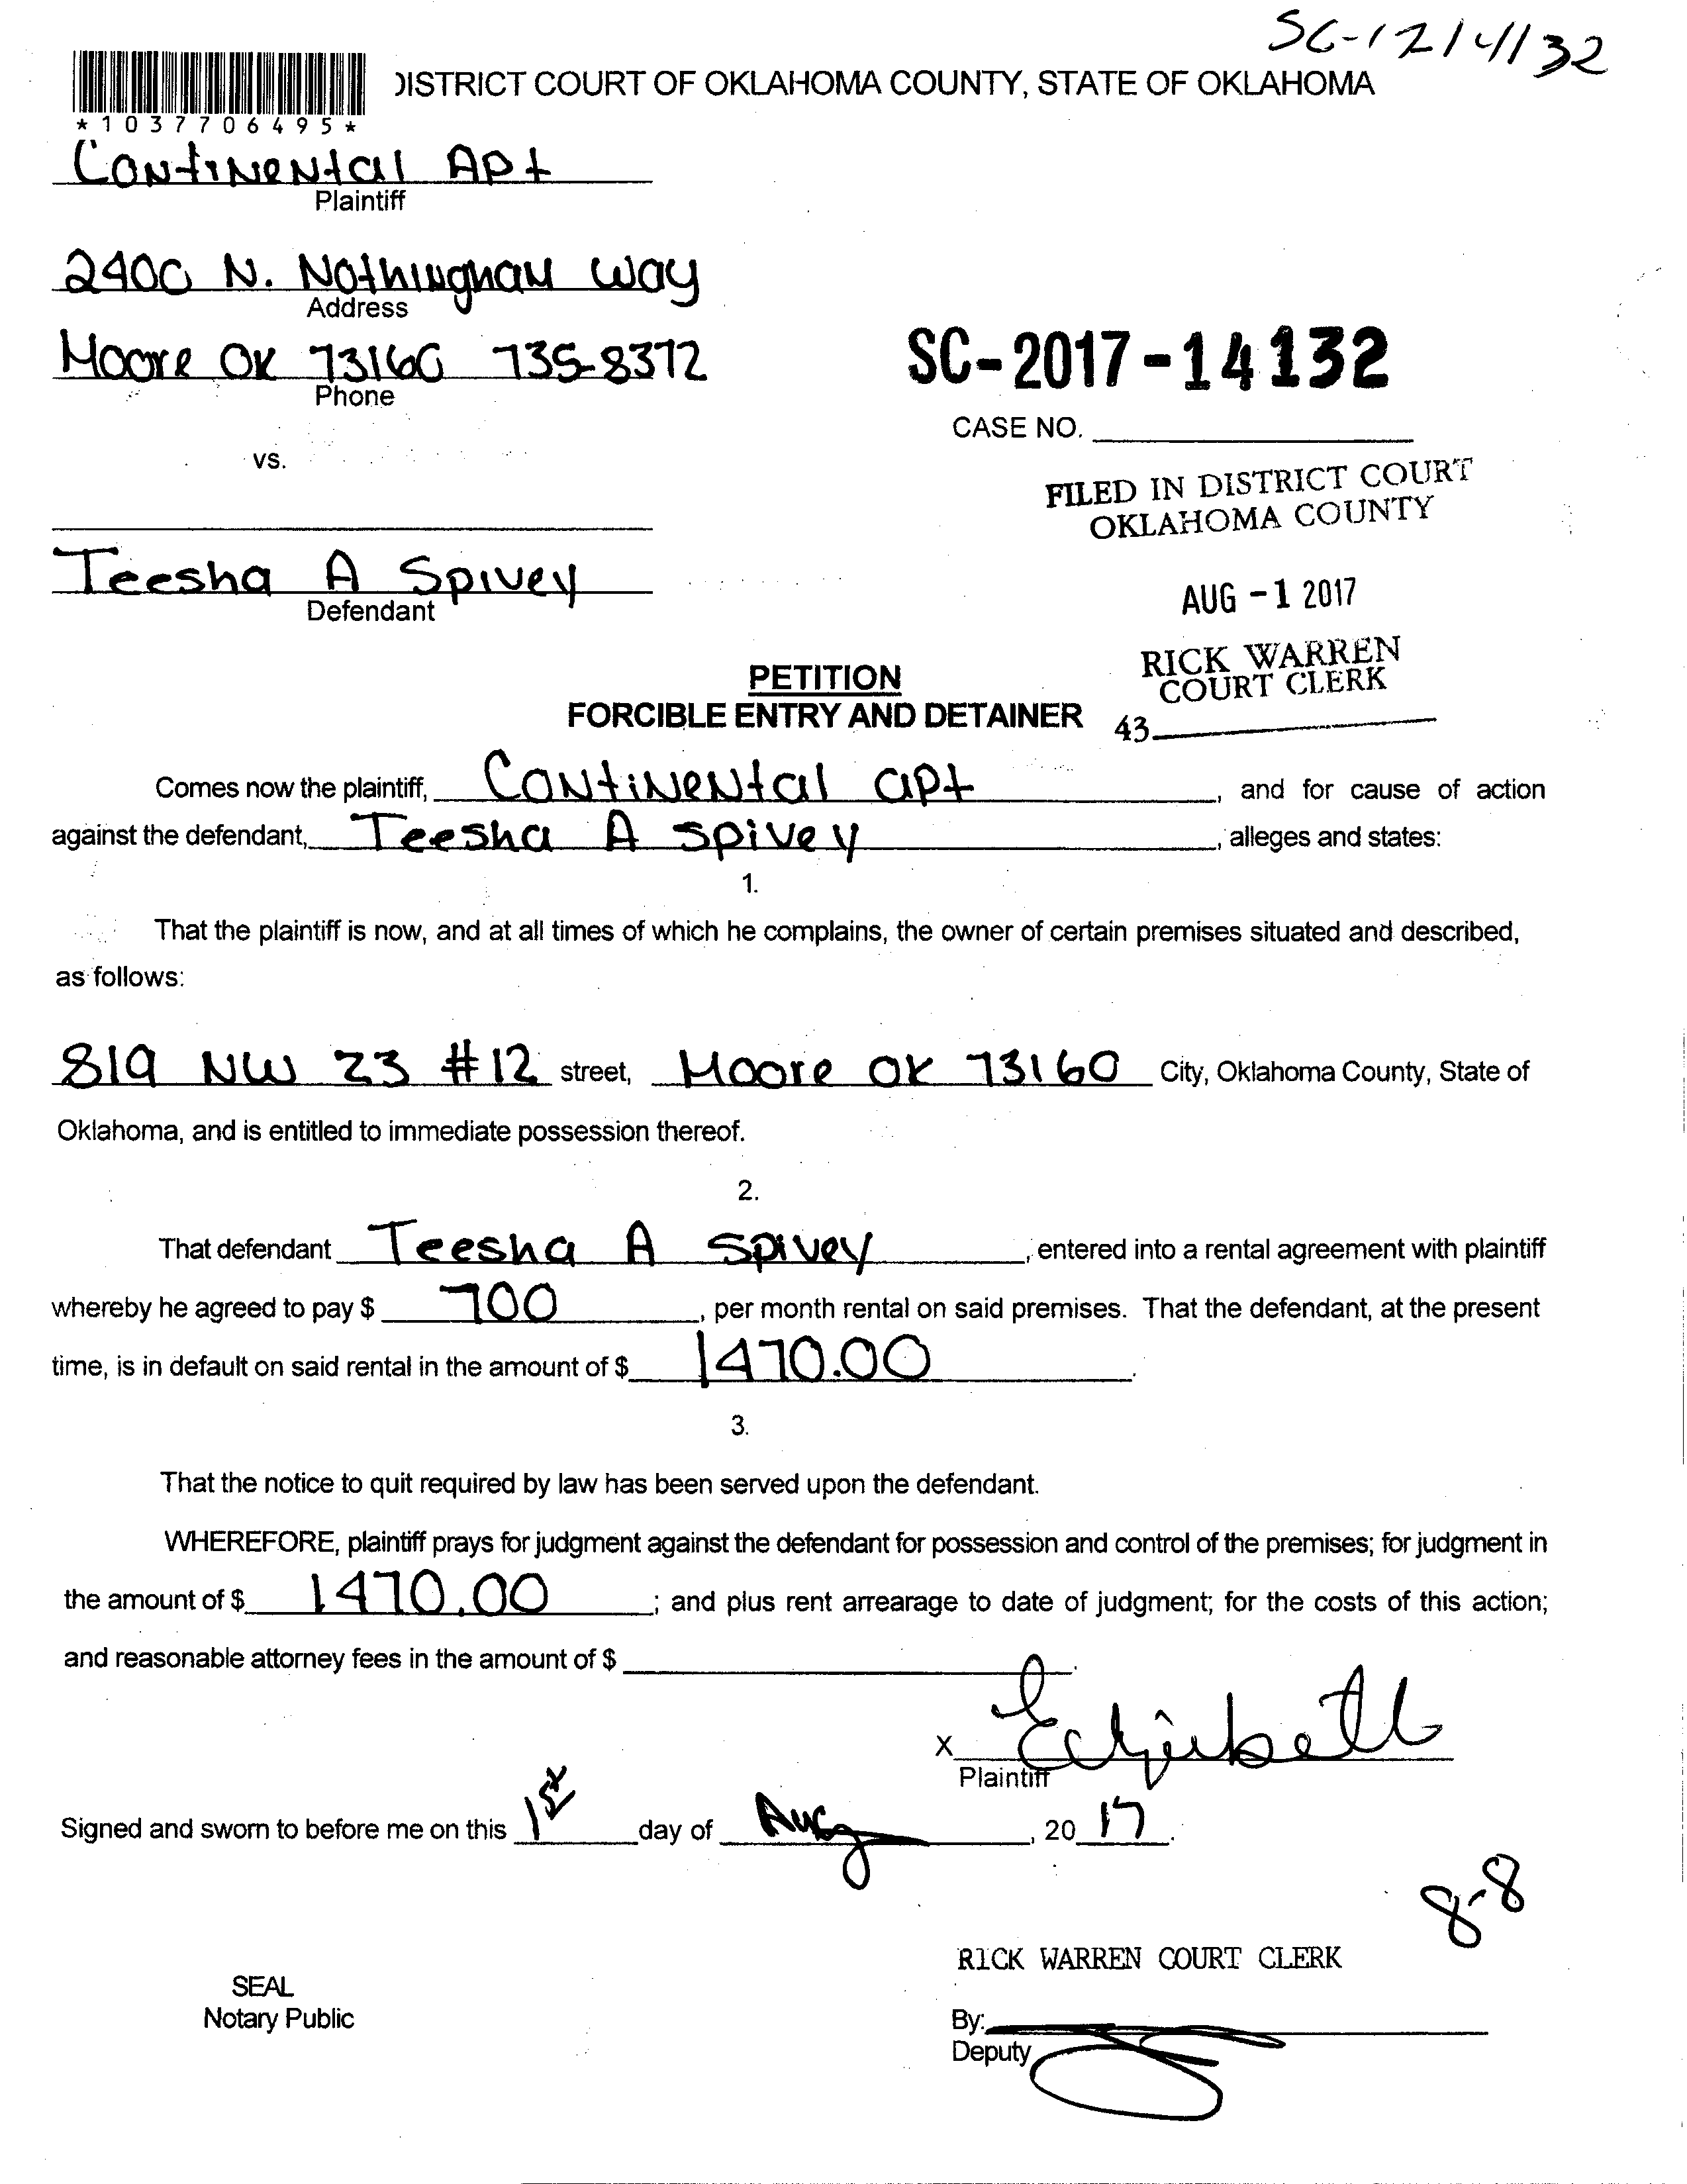 SC-17 14132
DISTRICT COURT OF OKLAHOMA COUNTY, STATE OF OKLAHOMA
*1037706495*
Continental Apt
Plaintiff
2400 N. Nothingham Way
Address
Moore OK 73160 735-8372
Phone
SC-2017-14132
CASE NO.
vs.
FILED IN DISTRICT COURT
OKLAHOMA COUNTY
Teesha A Spivey
Defendant
AUG -1 2017
RICK WARREN
COURT CLERK
43
PETITION
FORCIBLE ENTRY AND DETAINER
Comes now the plaintiff, Continental apt, and for cause of action
against the defendant, Teesha A spivey, alleges and states:
1.
That the plaintiff is now, and at all times of which he complains, the owner of certain premises situated and described,
as follows:
819 NW 23 #12 street, Moore OK 73160 City, Oklahoma County, State of
Oklahoma, and is entitled to immediate possession thereof.
2.
That defendant Teesha A spivey, entered into a rental agreement with plaintiff
whereby he agreed to pay $ 700, per month rental on said premises. That the defendant, at the present
time, is in default on said rental in the amount of $ 1470.00.
3.
That the notice to quit required by law has been served upon the defendant.
WHEREFORE, plaintiff prays for judgment against the defendant for possession and control of the premises; for judgment in
the amount of $ 1470.00; and plus rent arrearage to date of judgment; for the costs of this action;
and reasonable attorney fees in the amount of $
X
Plaintiff
Signed and sworn to before me on this 1st day of Aug, 20 17.
8-8
RICK WARREN COURT CLERK
SEAL
Notary Public
By:
Deputy